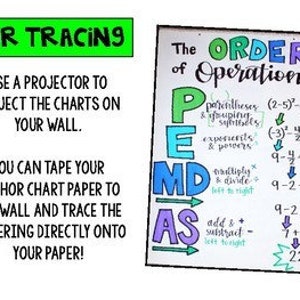 R TRACING
SE A PROJECTOR TO
JECT THE CHARTS ON
YOUR WALL.
OU CAN TAPE YOUR
HOR CHART PAPER TO
WALL AND TRACE THE
ERING DIRECTLY ONTO
YOUR PAPER!
The ORDER
of Operation
P parentheses
& grouping
symbols
E exponents
& powers
MD multiply
& divide
left to right
AS add &
subtract
left to right
(2-5)²
(-3)²
9-
9-2
9-2
7+